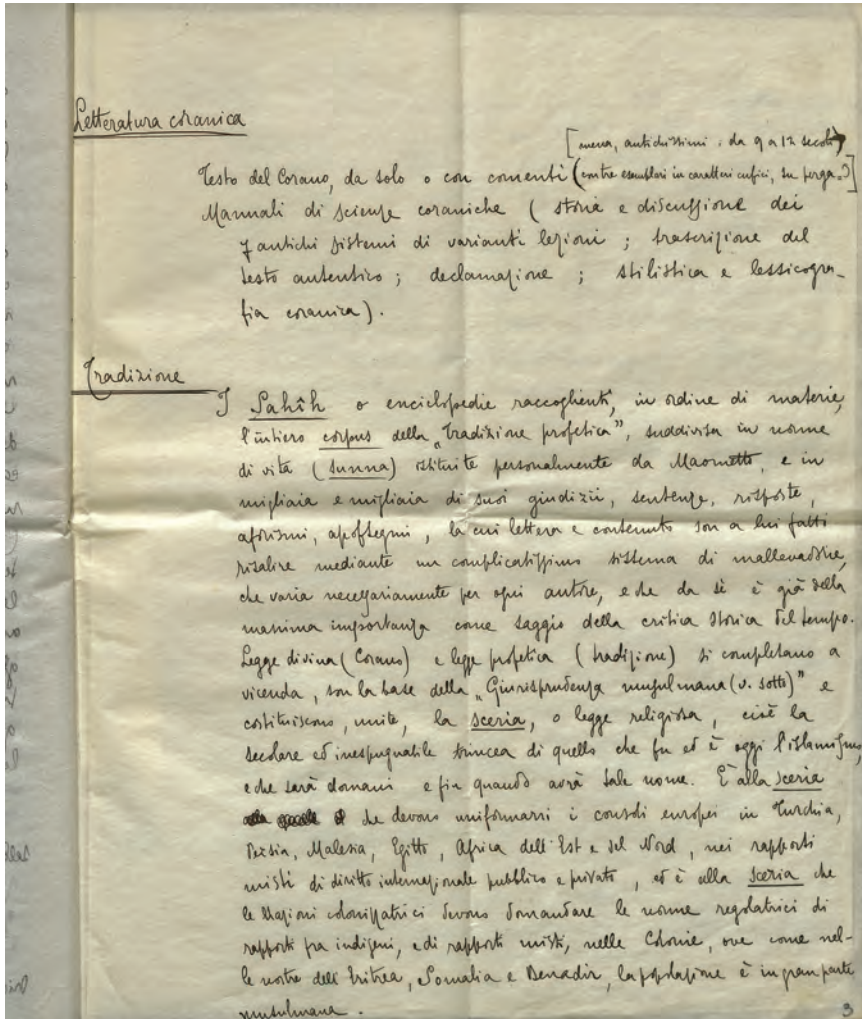 Letteratura coranica
antichissimi : da 9 a 12 secoli
Testo del Corano, da solo o con comenti (contre esemplari in caratteri cufici, su perga-)]
Manuali di scienze coraniche ( storia e discussione dei
7 antichi sistemi di varianti lezioni ; trascrizione del
testo autentico ; declamazione ; stilistica e lessicogra-
fia coranica).
Tradizione
I Sahîh o enciclopedie raccoglienti, in ordine di materie,
l'intiero corpus della „Tradizione profetica", suddivisa in norme
di vita ( sunna) istituite personalmente da Maometto, e in
migliaia e migliaia di suoi giudizii, sentenze, risposte,
aforismi, apoftegmi, la cui lettera e contenuto son a lui fatti
risalire mediante un complicatissimo sistema di mallevadorie,
che varia necessariamente per ogni autore, e che da sè è già della
massima importanza come saggio della critica storica del tempo.
Legge divina (Corano) e legge profetica ( tradizione) si completano a
vicenda, son la base della „Giurisprudenza musulmana (v. sotto)" e
costituiscono, unite, la sceria, o legge religiosa, cioè la
secolare ed inespugnabile trincea di quello che fu ed è oggi l'islamismo,
e che sarà domani e fin quando avrà tale nome. È alla sceria
che devono uniformarsi i consoli europei in Turchia,
Persia, Malesia, Egitto, Africa dell'Est e del Nord, nei rapporti
misti di diritto internazionale pubblico e privato, ed è alla sceria che
le Nazioni colonizzatrici devono domandare le norme regolatrici di
rapporti fra indigeni, e di rapporti misti, nelle Colonie, ove come nel-
le nostre dell'Eritrea, Somalia e Benadir, la popolazione è in gran parte
musulmana.
3